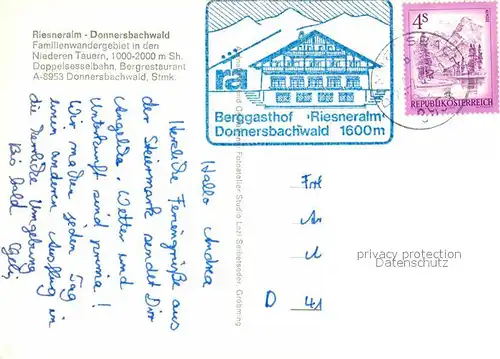 Riesneralm - Donnersbachwald
Familienwandergebiet in den
Niederen Tauern, 1000-2000 m Sh.
Doppelsesselbahn, Bergrestaurant
A-8953 Donnersbachwald, Stmk.
rä
Berggasthof ‚Riesneralm'
Donnersbachwald 1600m
4s
REPUBLIK ÖSTERREICH
Hallo Andrea
Herzliche Feriengrüße aus
der Steiermark sendet Dir
Angelika. Wetter und
Unterkunft sind prima!
Wir machen jeden Tag
einen anderen Ausflug in
die herrliche Umgebung
Bis bald
D 41
privacy protection
Datenschutz